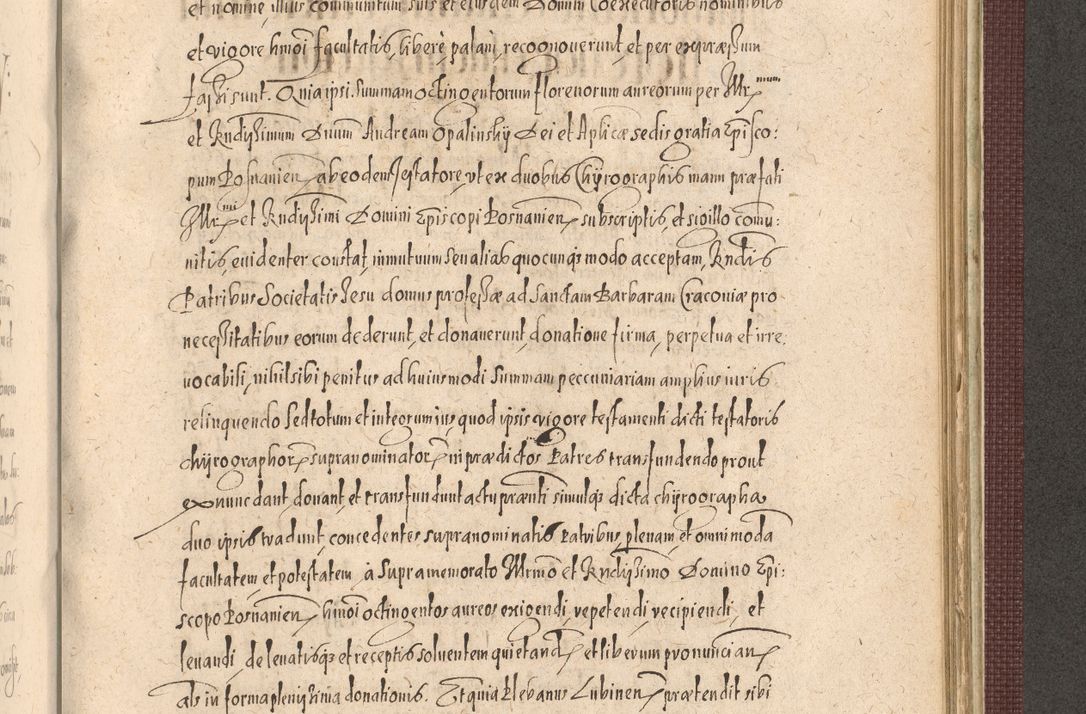 et nomine, illius communitum suis et eiusdem Domini Coexecutoris nominibus
et vigore hmoi facultatis, libere, palam, recognoverunt, et per expressum
fassi sunt. Quia ipsi Summam octingentorum florenorum aureorum per Mr̃mum
et Rndissimum Dnum Andream Opalinskÿ Dei et Aplicæ sedis gratia Epi̅sco:
pum Posnanien̅ ab eodem Testatore, vt ex duobus Chÿrographis manu præfati
Mr̃mi et Rndissimi Domini Episcopi Posnanien̅ subscriptis, et sigillo comu:
nitis, evidenter constat, in mutuum seu aliab quocunqȝ modo acceptam, Rndis
Patribus Societatis Jesu domus professæ ad Sanctam Barbaram Cracoviæ pro
necessitatibus eorum dederunt, et donaverunt, donatione firma, perpetua et irre,
vocabili, nihil sibi penitus ad huiusmodi Summam peccuniariam amplius iuris
relinquendo Sed totum et integrum ius quod ipsis vigore testamenti dicti testatoris
chÿrographor̅ supranominator̅ in prædictos Patres transfundendo prout
ex nunc dant, donant et transfundunt actu præn̅ti simulqȝ dicta chÿrographa
duo ipsis tradunt, concedentes supranominatis Patribus, plenam, et omnimoda̅
facultatem et potestatem, à Supramemorato Mrmo et Rndissimo Domino Epi:
scopo Posnanien̅ hmoi octingentos aureos exigendi, repetendi, recipiendi, et
levandi, de levatisqȝ et receptis solventem quietand̅ et liberum pronuncian̅
als in forma plenissima donationis. Et quia Plebanus Lubinen̅ prætendit sibi